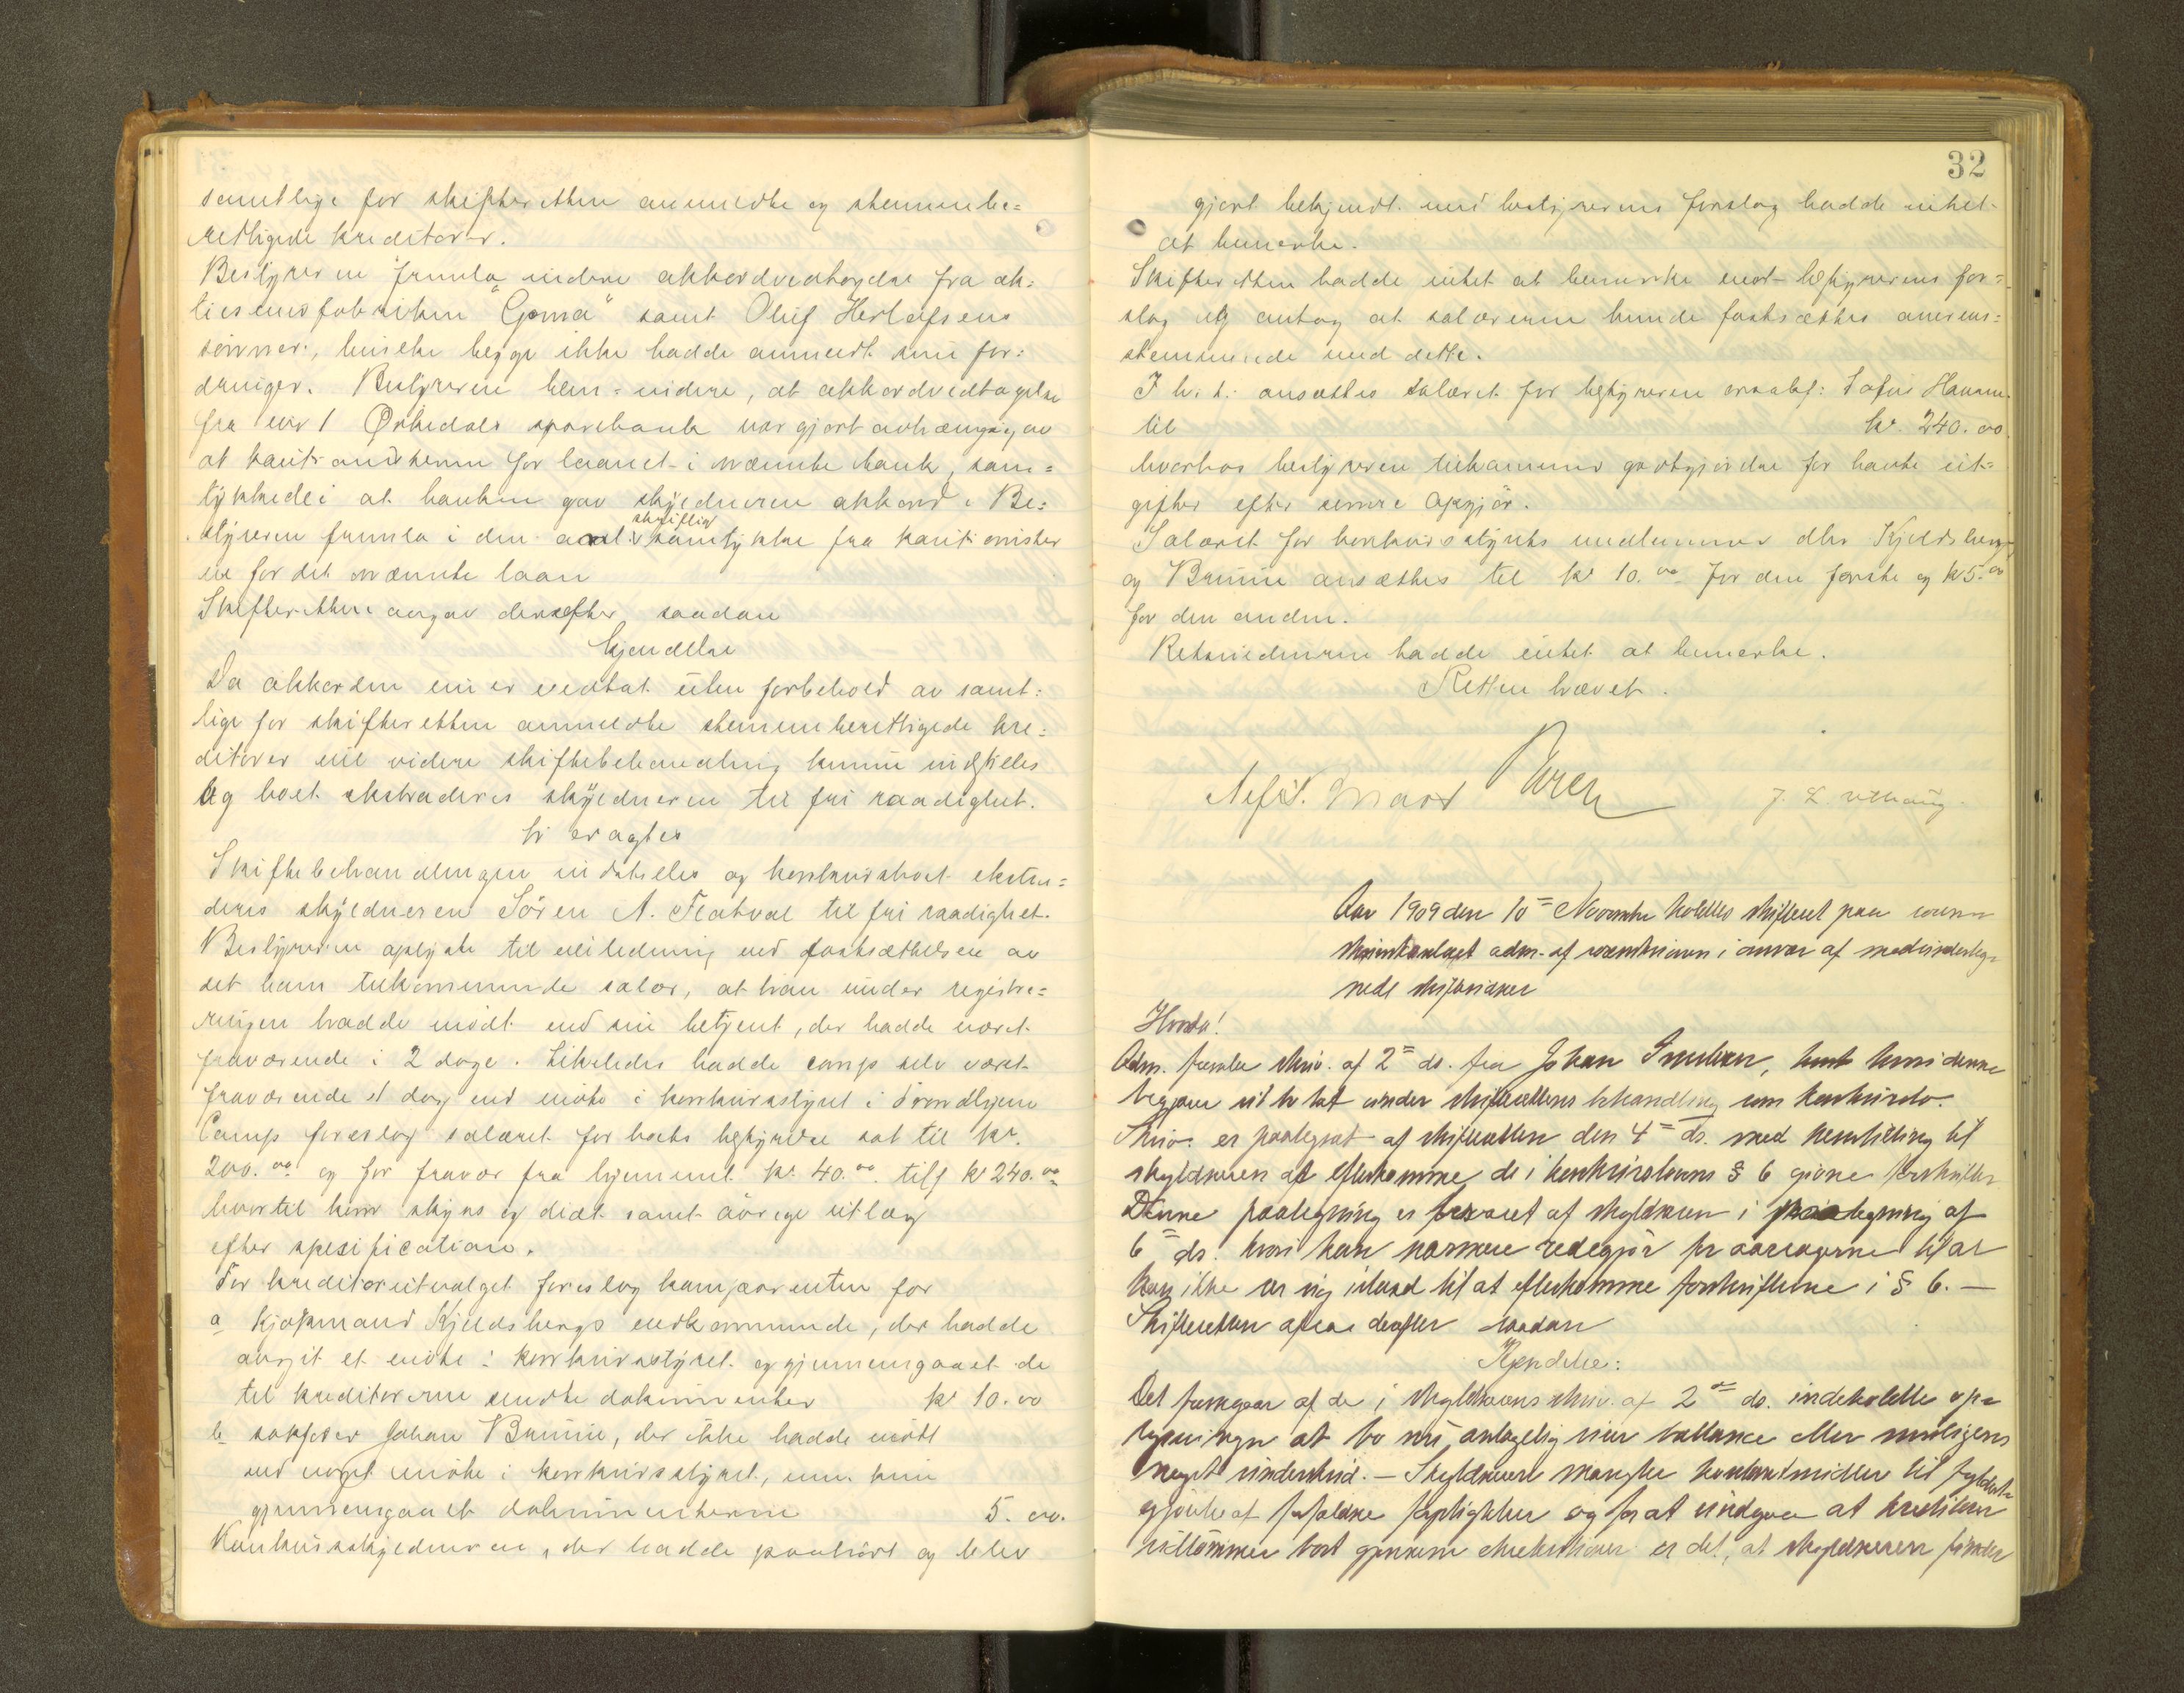 samtlige for skifteretten anmeldte og stemmebe=
rettigede kreditorer.
Bestyreren fremla videre akkordvedtagelse fra æk=
"Goma" samt Oluf Herlofsens
sønner, hvilke begge ikke hadde anmeldt sine for=
dringer. Bestyreren bem. videre, at akkordvedtagelse
fra nr 1 Ørkedals sparebank var gjort avhængig av
at kautionisterne for laanet i nævnte bank, sam=
tykkede i at banken gav skyldneren akkord. Be=
styreren fremla i den anl. skriftlig samtykke fra kautionister
ne for det nævnte laan
Skifteretten avgav derefter saadan
kjendelse
Da akkorden nu er vedtat uten forbehold av samt=
lige for skifteretten anmeldte stemmeberettigede kre=
ditorer vil videre skiftebehandling kunne indstilles
og boet ekstraderes skyldneren til fri raadighet.
ti eragtes
Skiftebehandlingen indstilles og konkursboet ekstra=
deres skyldneren Sören A. til fri raadighet.
Bestyreren oplyste til veiledning ved fastsættelsen av
det ham tilkommende salær, at han under registre=
ringen hadde mødt ved sin betjent, der hadde været
fraværende i 2 dage. Likeledes hadde comp selv været
fraværende et dag ved møte i konkursstyret i Trondhjem
Comp foreslog salæret for boets bestyrelse sat til kr.
200.00 og for fravær fra hjemmet kr. 40.00. tils kr 240.00
hvortil kom skyss og diæt samt øvrige utlæg
efter spesification.
For kreditorutvalget foreslog komparenten for
a kjøpmand Kjeldsbergs vedkommende, der hadde
avgit et møte i konkursstyret og gjennemgaaet de
til kreditorerne sendte dokumenter kr 10.00
b sakfører Johan Bruun, der ikke hadde møtt
ved noget møte i konkursstyret, men kun
gjennemgaaet dokumenterne 5. 00.
Konkursskyldneren, der hadde paahørt og blev
32
gjort bekjendt med bestyrerens forslag hadde intet
at bemerke.
Skifteretten hadde intet at bemerke mot bestyrerens for=
slag og antog at salærerne kunde fastsættes overens=
stemmende med dette.
I h. t. ansættes salæret for bestyreren
til kr. 240.00
hvorhos bestyreren tilkommer godtgjørelse for havte ut=
gifter efter senere opgjør.
Salæret for konkursstyrets medlemmer dhr Kjeldsberg
og Bruun ansættes til kr 10.00 for den første og kr 5.00
for den anden.
Retsvidnerne hadde intet at bemerke.
Retten hævet.
Aar 1909 den 10de November holdtes skifteret paa
adm. af i nærvær af medunderteg
nede skiftevidner
Hvorda!
Adm. fremla skriv. af 2de ds. fra Johan hvori denne
begjærer sit bo tat under skifterettens behandling som konkursbo.
Skriv. er paategnet af skifteretten den 4de ds. med henstilling til
skyldneren at efterkomme de i konkurslovens § 6 givne forskrifter
Denne paategning er besvaret af skyldneren i paategning af
6te ds. hvori han nærmere redegjør for aarsagerne til at
han ikke ser sig istand til at efterkomme forskrifterne i § 6. —
Skifteretten afsaa derefter saadan
Kjendelse:
Det fremgaar af de i skyldnerens skriv. af 2de ds. indeholdte op=
lysninger at bo nu antagelig viser ballance eller muligens
noget underskud. — Skyldneren mangler kontantmidler til fyldest
gjørelse af forfaldne forpligtelser og for at undgaa at kreditorer
uttømmer boet gjennem eksekutioner er det, at skyldneren finder